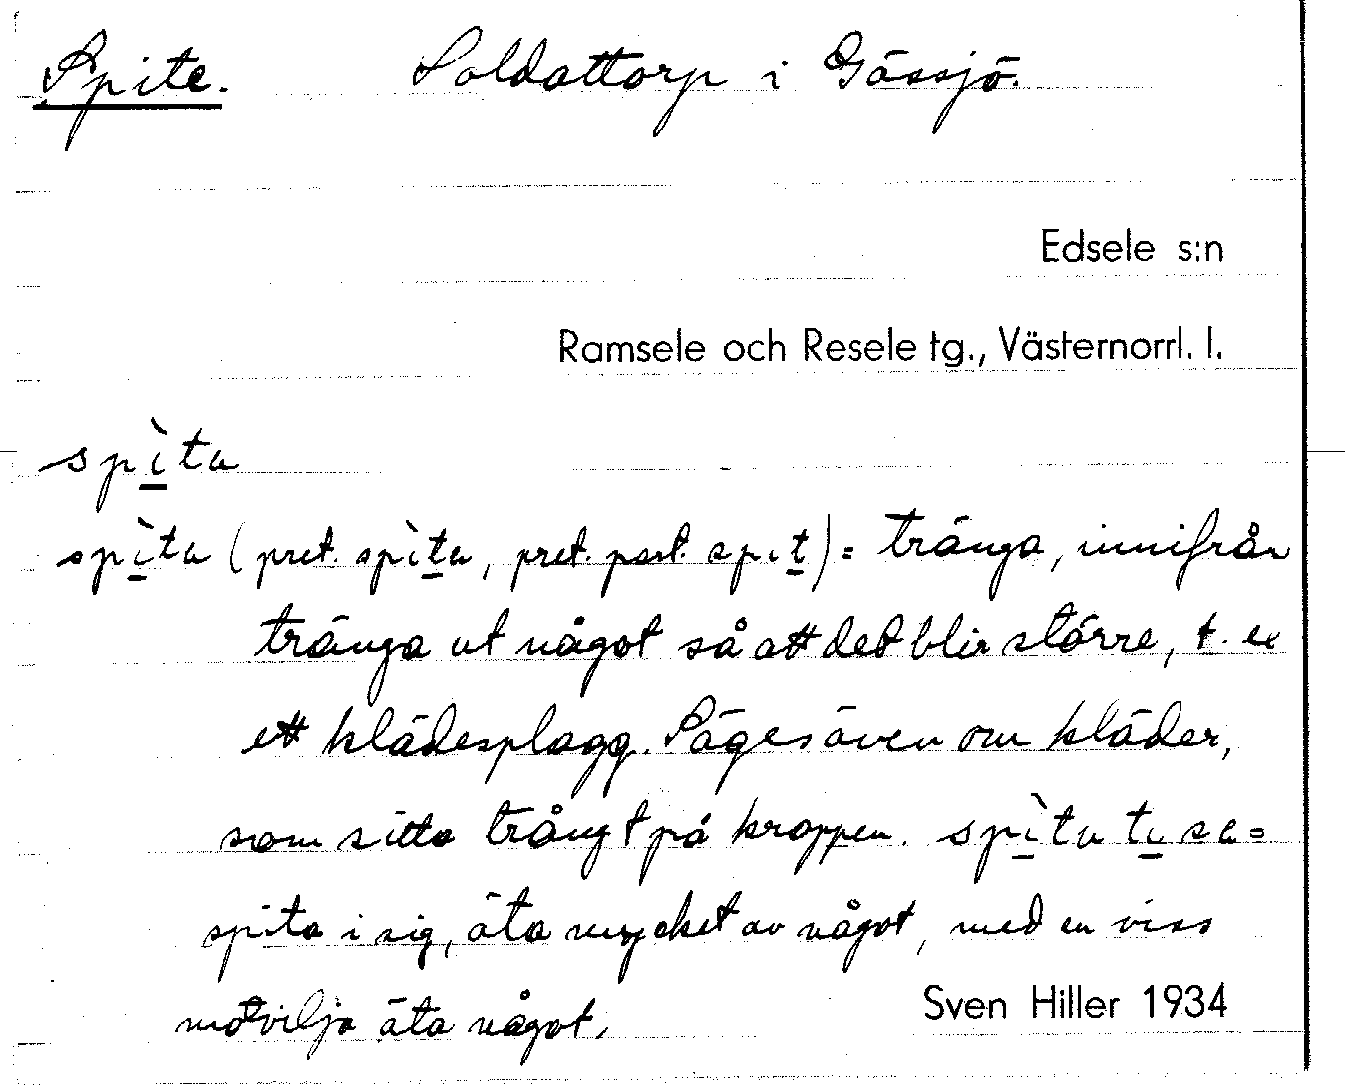 Spite. Soldattorp i Gåssjö.
Edsele s:n
Ramsele och Resele tg., Västernorrl. l.
spìta
spìta (pret. spìta, pret. part. spit) = tränga, innifrån
tränga ut något så att det blir större, t. ex
ett klädesplagg. Säges även om kläder,
som sitta trångt på kroppen. spìta ti sa =
spita i sig, äta mycket av något, med en viss
motvilja äta något.
Sven Hiller 1934